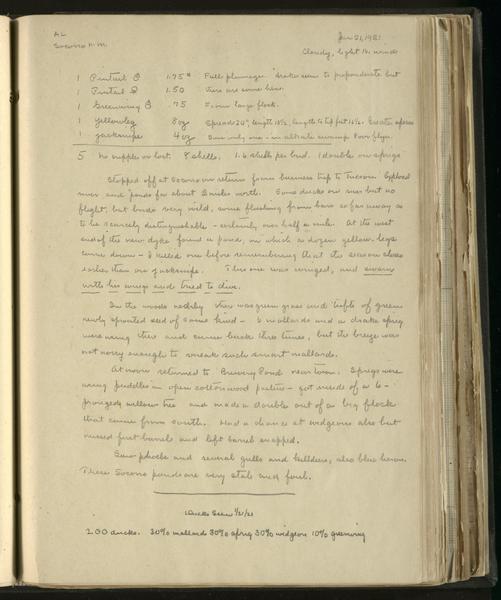 AL
Socorro N.M.
Jan 21, 1921
Cloudy, light N. winds
1 Pintail ♂ 1.75# Full plumage. Drake seem to preponderate but
1 Pintail 1.50 there are some hens.
1 Greenwing ♂ .75 From large flock.
1 Yellowleg 8 oz Spread 24", length
1 Jacksnipe 4 oz Saw only one in alkali swamp. Poor flyer.
5 no cripples or lost. 8 shells. 1.6 shells per bird. 1 double on sprigs
Stopped off at Socorro on return from business trip to Tucson. Explored
river and ponds for about 2 miles north. Some ducks on river but no
flight, but birds very wild, some flushing from bars so far away as
to be scarcely distinguishable - certainly over half a mile. At the west
end of the new dyke found a pond, in which a dozen yellow legs
came down - I killed one before remembering that the season closes
earlier than on jacksnipe. This one was winged, and swam
with his wings and tried to dive.
In the woods nearby there was green grass and tufts of green
newly sprouted seed of some kind - 6 mallards and a drake sprig
were using there and came back three times, but the breeze was
not noisy enough to sneak such smart mallards.
At noon returned to Brewery Pond near town. Sprigs were
using puddles in open cottonwood pasture - got inside of a 6-
pronged willow tree and made a double out of a big flock
that came from south. Had a chance at widgeons also but
missed first barrels and left barrel snapped.
Saw phoebe and several gulls and killdeers, also blue heron.
These Socorro ponds are very stale and foul.
Ducks Seen 1/21/21
200 ducks. 30% mallards 30% sprig 30% widgeon 10% greenwing